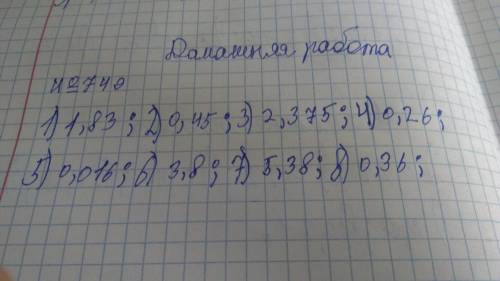 Домашняя работа
№ 740
1) 1,83; 2) 0,45; 3) 2,375; 4) 0,26;
5) 0,016; 6) 3,8; 7) 5,38; 8) 0,36;